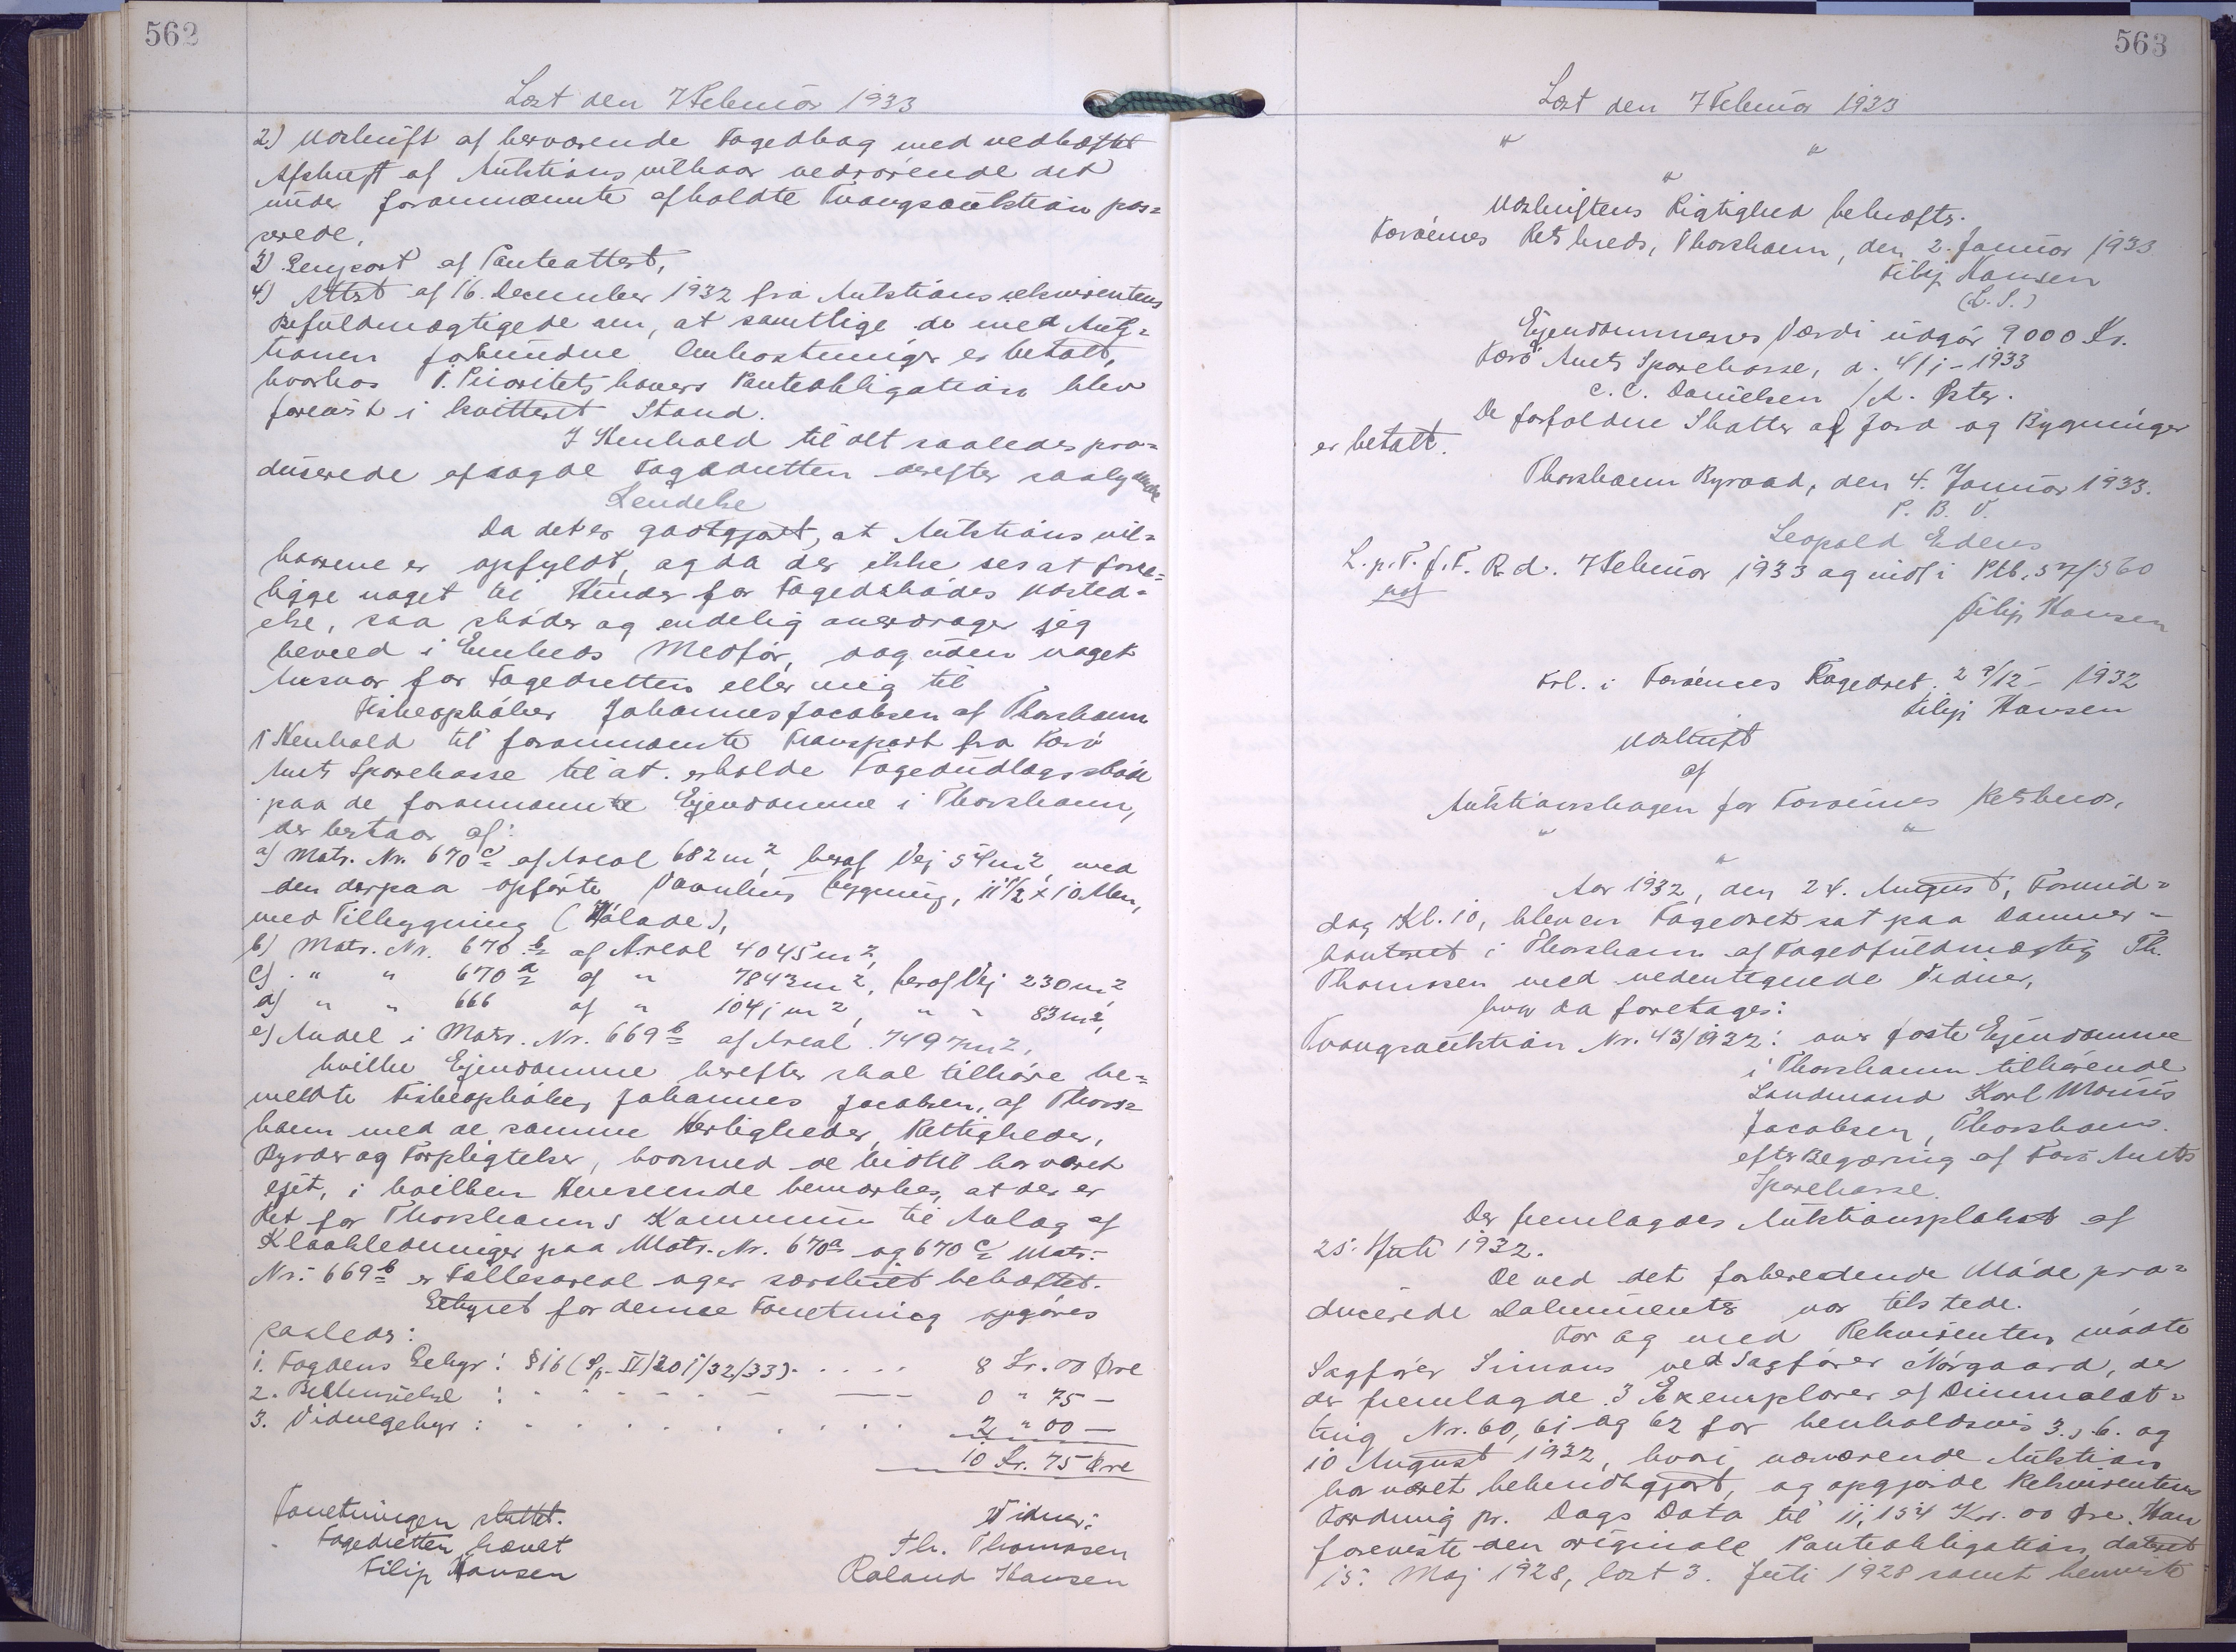 562
Læst den 7 Februar 1933
2) Udskrift af herværende Fogedbog med vedhæftet
Afskrift af Auktionsvilkaar vedrørende det
under forannævnte afholdte Tvangsauktion pas=
serede,
3) Genpart af Panteattest,
4) Attest af 16. December 1932 fra Auktionsrekvirentens
Befuldmægtigede om, at samtlige de med Auk=
tionen forbundne Omkostninger er betalt,
hvorhos 1. Prioritetshavers Panteobligation blev
forevist i kvitteret Stand.
I Henhold til alt saaledes pro=
ducerede afsagde Fogedretten derefter saalydende
Kendelse
Da det er godtgjort, at Auktionsvil=
kaarene er opfyldt, og da der ikke ses at fore=
ligge noget til Hinder for Fogedskødes Udsted=
else, saa skøder og endelig overdrager jeg
herved i Embeds Medfør, dog uden noget
Ansvar for Fogedretten eller mig til
Fiskeopkøber Johannes Jacobsen af Thorshavn
i Henhold til forannævnte Transport fra Færø
Amts Sparekasse til at erholde Fogedudlægsskøde
paa de forannævnte Ejendomme i Thorshavn,
der bestaar af:
a) Matr. Nr. 670c af Areal 682 m², heraf Vej 54 m², med
den derpaa opførte Vaanhus bygning, 11½ x 10 Alen,
med Tilbygning (Hølade),
b) Matr. Nr. 670b af Areal 4045 m²,
c) " " 670a af " 7843 m², heraf Vej 230 m²,
d) " " 666 af " 1041 m², " " 83 m²,
e) Andel i Matr. Nr. 669b af Areal 7497 m²,
hvilke Ejendomme herefter skal tilhøre be=
meldte Fiskeopkøber Johannes Jacobsen, af Thors=
havn med de samme Herligheder, Rettigheder,
Byrder og Forpligtelser, hvormed de hidtil har været
ejet, i hvilken Henseende bemærkes, at der er
Ret for Thorshavns Kommune til Anlæg af
Kloakledninger paa Matr. Nr. 670a og 670c Matr.-
Nr. 669b er Fællesareal og er særskilt behæftet.
Gebyret for denne Forretning opgøres
saaledes:
1. Fogdens Gebyr: § 16 (Sp. II/201/32/33) . . . . 8 Kr. 00 Øre
2. Bekræftelse : - - - - - 0 " 75 —
3. Vidnegebyr : . . . . . . . . 2 " 00 —
10 Kr. 75 Øre
Forretningen sluttet.
Fogedretten hævet
Filip Hansen
Vidner:
Th. Thomasen
Roland Hansen
563
Læst den 7 Februar 1933
" "
"
Udskriftens Rigtighed bekræftes.
Færøernes Retskreds, Thorshavn, den 2. Januar 1933
Filip Hansen
(L. S.)
Ejendommenes Værdi udgør 9000 Kr.
Færø Amts Sparekasse, d. 4/1 - 1933
C. C. Danielsen / A. Øster.
De forfaldne Skatter af Jord og Bygninger
er betalt.
Thorshavn Byraad, den 4. Januar 1933.
P. B. V.
Leopold Edens
L. p. T. f. F. R. d. 7 Februar 1933 og indf i Ptb. 57/560
Filip Hansen
Frl. i Færøernes Fogedret. 29/12 - 1932
Filip Hansen
Udskrift
af
Auktionsbogen for Færøernes Retskreds,
" "
"
Aar 1932, den 24. August, Formid=
dag Kl. 10, blev en Fogedret sat paa Dommer=
kontoret i Thorshavn af Fogedfuldmægtig Th.
Thomasen med vedentegnede Vidner,
hvor da foretages:
Tvangsauktion Nr. 43/1932: over faste Ejendomme
i Thorshavn tilhørende
Landmand Karl Mouris
Jacobsen, Thorshavn.
efter Begæring af Færø Amts
Sparekasse.
Der fremlagdes Auktionsplakat af
25. Juli 1932.
De ved det forberedende Møde pro=
ducerede Dokumenter var tilstede.
For og med Rekvirenten mødte
Sagfører Simons ved Sagfører Nørgaard, der
der fremlagde 3 Exemplarer af Dimmalæt=
ting Nr. 60, 61 og 62 for henholdsvis 3. 6. og
10 August 1932, hvori nærværende Auktion
har været bekendtgjort, og opgjorde Rekvirentens
Fordring pr. Dags Dato til 11,154 Kr. 00 Øre. Han
foreviste den originale Panteobligation, dateret
15. Maj 1928, læst 3. Juli 1928 samt henviste